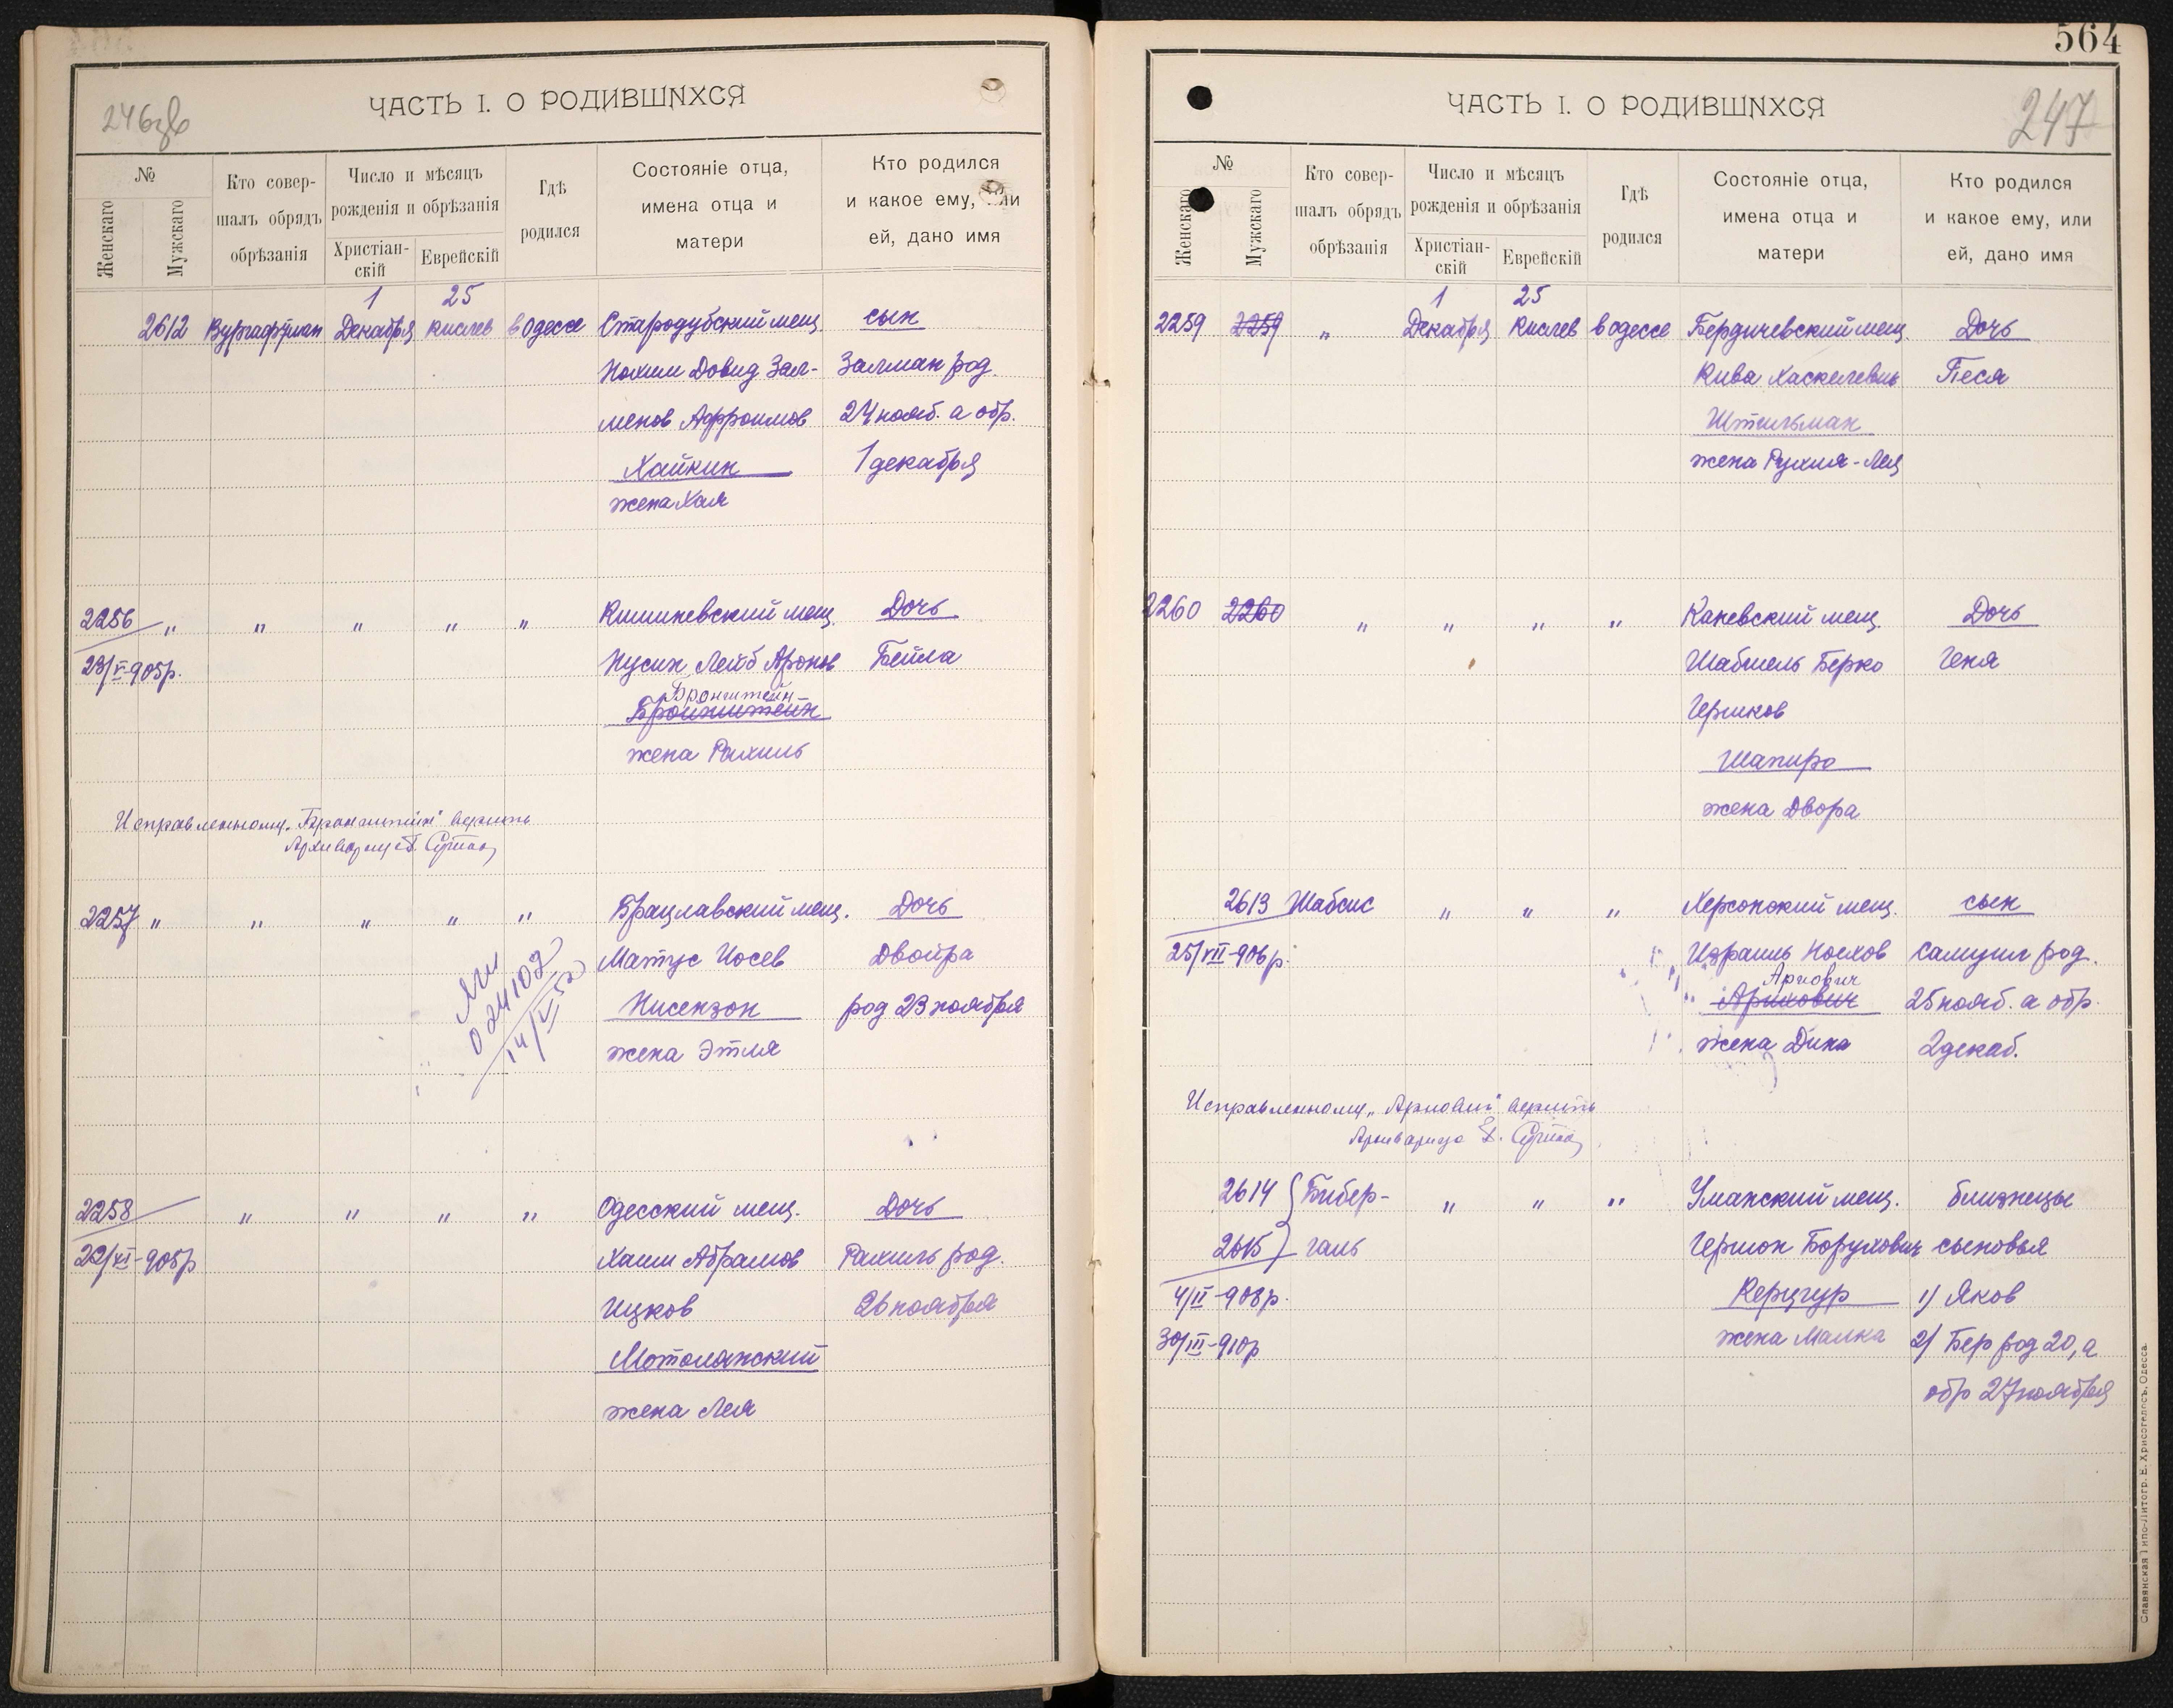 246об
ЧАСТЬ I. О РОДИВШИХСЯ
№
Женскаго
Мужскаго
Кто совер-
шалъ обрядъ
обрѣзанія
Число и мѣсяцъ
рожденія и обрѣзанія
Христіан-
скій
Еврейскій
Гдѣ
родился
Состояніе отца,
имена отца и
матери
Кто родился
и какое ему, или
ей, дано имя
1 25
2612 Вургафтман Декабря кислев в Одессе Стародубский мещ. сын
Нохим Довид Зал- Залман род.
менов Афроимов 24 нояб. а обр.
Хайкин 1 декабря
жена Хая
2256 " " " " " Кишиневский мещ. Дочь
23/V-905р. Нусин Лейб Аронов Бейла
Бронштейн
Бронштейн
жена Рахиль
Исправленному „Бронштейн" верить
2257 " " " " " Брацлавский мещ. Дочь
Матус Иосев Двойра
Нисензон род 23 ноября
жена Этля
024102
14/VI 52
2258 " " " " Одесский мещ. Дочь
22/XI-905р Хаим Абрамов Рахиль род.
Ицков 26 ноября
Мотолянский
жена Лея
564
247
ЧАСТЬ I. О РОДИВШИХСЯ
№
Женскаго
Мужскаго
Кто совер-
шалъ обрядъ
обрѣзанія
Число и мѣсяцъ
рожденія и обрѣзанія
Христіан-
скій
Еврейскій
Гдѣ
родился
Состояніе отца,
имена отца и
матери
Кто родился
и какое ему, или
ей, дано имя
1 25
2259 2259 " Декабря Кислев в Одессе Бердичевский мещ. Дочь
Кива Хаскелевич Песя
Штильман
жена Рухля-Лея
2260 2260 " " " " Каневский мещ. Дочь
Шабшель Берко Геня
Гершков
Шапиро
жена Двора
2613 Шабсис " " " Херсонский мещ. сын
25/VII-906р. Израиль Носхов Самуил род.
Арнович
25 нояб. а обр.
жена Дина 2 декаб.
Исправленному „Арнович" верить
2614 Бибер- " " " Уманский мещ. близнецы
2615 галь Гершон Борухович сыновья
4/II-908р. Керцгур 1) Яков
30/III-910р жена Малка 2) Бер род 20, а
обр 27 ноября
Славянская Типо-Литогр. Е. Хрисогелосъ, Одесса.